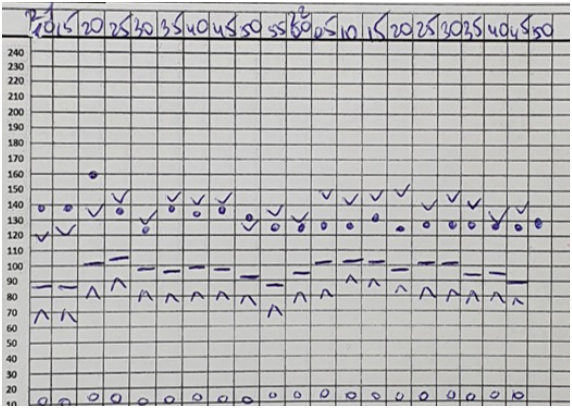 10 15 20 25 30 35 40 45 50 55 00 05 10 15 20 25 30 35 40 45 50
240
230
220
210
200
190
180
170
160
150
140
130
120
100
90
80
70
60
50
40
30
20
10